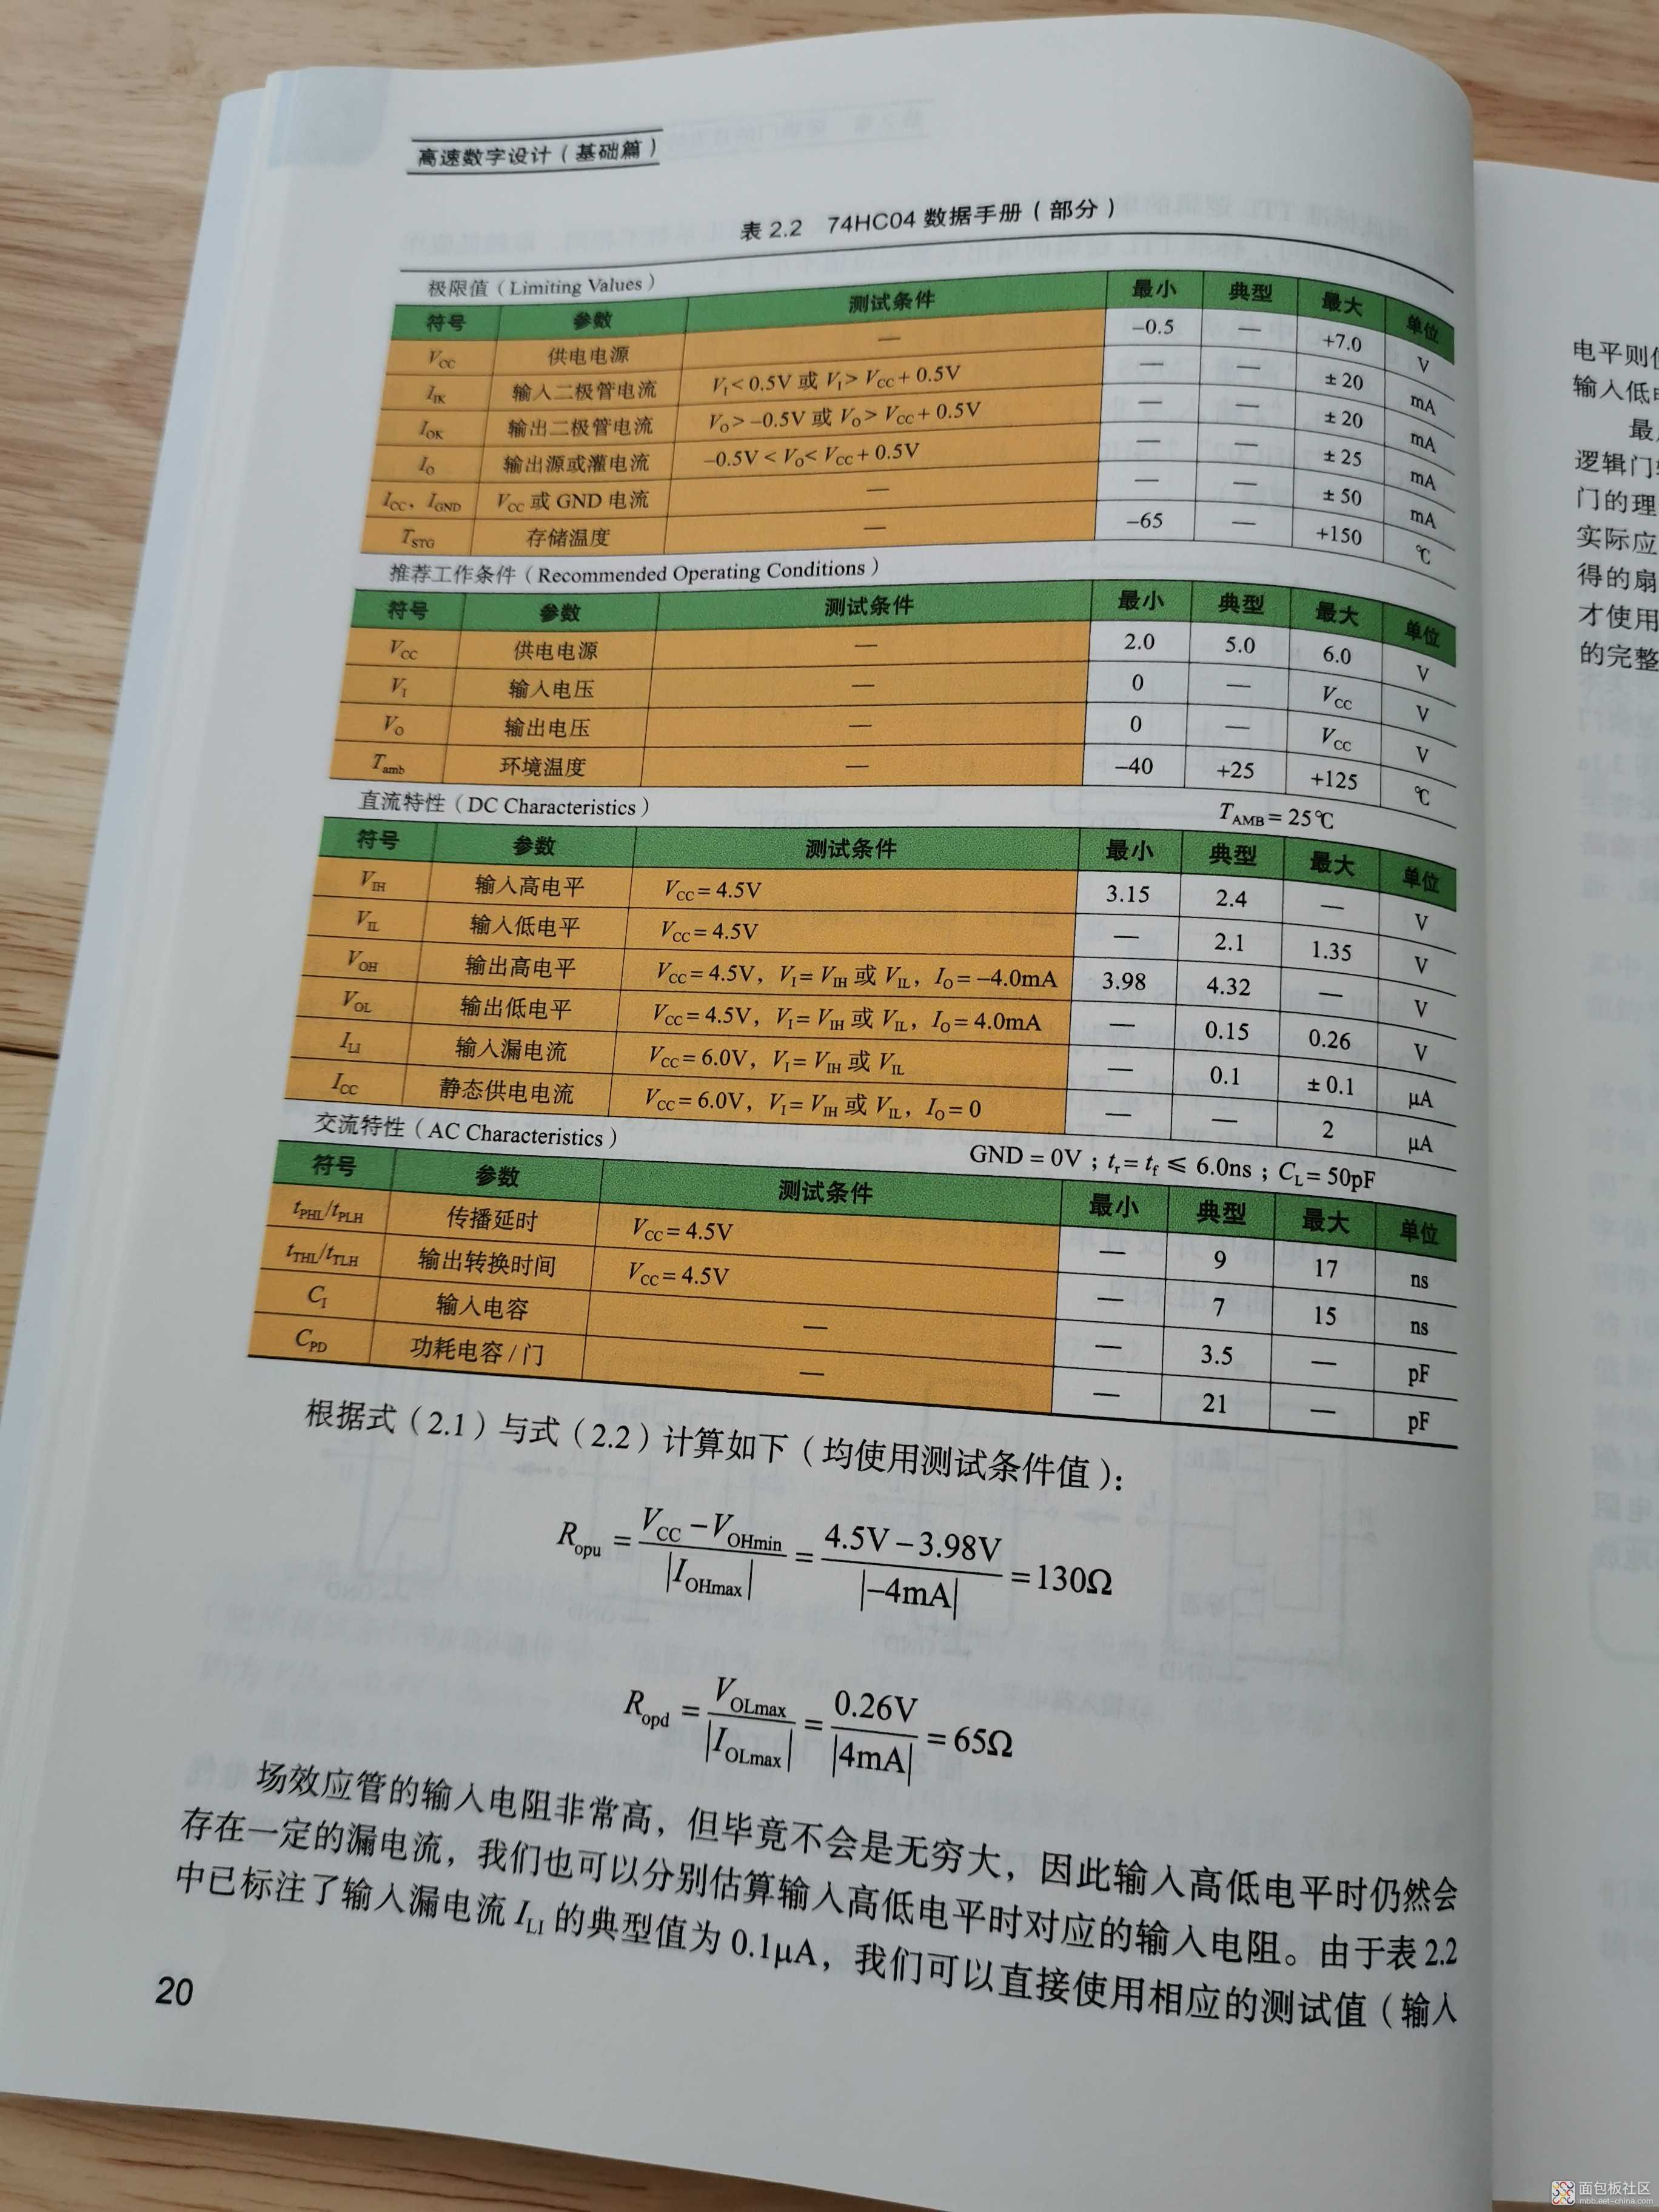 高速数字设计（基础篇）
表 2.2 74HC04 数据手册（部分）
极限值（Limiting Values）
符号 参数 测试条件 最小 典型 最大 单位
VCC 供电电源 — −0.5 — +7.0 V
IIK 输入二极管电流 VI < 0.5V 或 VI > VCC + 0.5V — — ± 20 mA
IOK 输出二极管电流 VO > −0.5V 或 VO > VCC + 0.5V — — ± 20 mA
IO 输出源或灌电流 −0.5V < VO < VCC + 0.5V — — ± 25 mA
ICC，IGND VCC 或 GND 电流 — — — ± 50 mA
TSTG 存储温度 — −65 — +150 ℃
推荐工作条件（Recommended Operating Conditions）
符号 参数 测试条件 最小 典型 最大 单位
VCC 供电电源 — 2.0 5.0 6.0 V
VI 输入电压 — 0 — VCC V
VO 输出电压 — 0 — VCC V
Tamb 环境温度 — −40 +25 +125 ℃
直流特性（DC Characteristics） TAMB = 25℃
符号 参数 测试条件 最小 典型 最大 单位
VIH 输入高电平 VCC = 4.5V 3.15 2.4 — V
VIL 输入低电平 VCC = 4.5V — 2.1 1.35 V
VOH 输出高电平 VCC = 4.5V，VI = VIH 或 VIL，IO = −4.0mA 3.98 4.32 — V
VOL 输出低电平 VCC = 4.5V，VI = VIH 或 VIL，IO = 4.0mA — 0.15 0.26 V
ILI 输入漏电流 VCC = 6.0V，VI = VIH 或 VIL — 0.1 ± 0.1 μA
ICC 静态供电电流 VCC = 6.0V，VI = VIH 或 VIL，IO = 0 — — 2 μA
交流特性（AC Characteristics） GND = 0V；tr = tf ⩽ 6.0ns；CL = 50pF
符号 参数 测试条件 最小 典型 最大 单位
tPHL/tPLH 传播延时 VCC = 4.5V — 9 17 ns
tTHL/tTLH 输出转换时间 VCC = 4.5V — 7 15 ns
CI 输入电容 — — 3.5 — pF
CPD 功耗电容 / 门 — — 21 — pF
根据式（2.1）与式（2.2）计算如下（均使用测试条件值）：
Ropu = (VCC − VOHmin) / |IOHmax| = (4.5V − 3.98V) / |−4mA| = 130Ω
Ropd = VOLmax / |IOLmax| = 0.26V / |4mA| = 65Ω
场效应管的输入电阻非常高，但毕竟不会是无穷大，因此输入高低电平时仍然会
存在一定的漏电流，我们也可以分别估算输入高低电平时对应的输入电阻。由于表 2.2
中已标注了输入漏电流 ILI 的典型值为 0.1μA，我们可以直接使用相应的测试值（输入
20
电平则
输入低
最
逻辑门
门的理
实际应
得的扇
才使用
的完整
面包板社区
mbb.eet-china.com